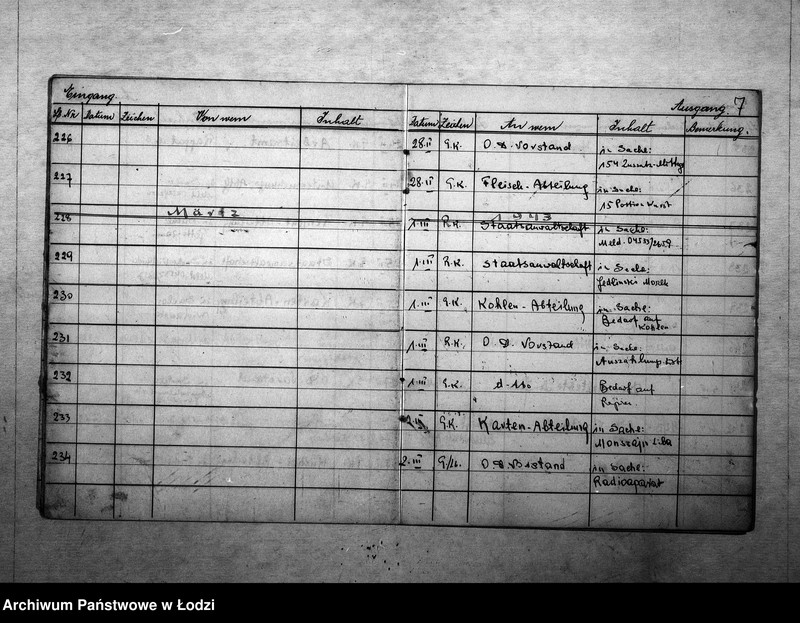 Eingang.
Ausgang. 7
Lp. Nr. Datum Zeichen Von wem Inhalt Datum Zeichen An wem Inhalt Bemerkung.
226 28.II G.K. O.D. Vorstand in Sache:
154
227 28.II G.K. Fleisch-Abteilung in Sache:
15 Portion Wurst
März 1943
228 1.III R.K. Staatsanwaltschaft in Sache:
Meld.
229 1.III R.K. Staatsanwaltschaft in Sache:
Jedlinski Moszek
230 1.III G.K. Kohlen-Abteilung in Sache:
Bedarf auf
Kohlen
231 1.III R.K. O.D. Vorstand in Sache:
232 1.III G.K. d-tto Bedarf auf
Papier.
233 2.III G.K. Karten-Abteilung in Sache:
Liba
234 2.III O.D. Vorstand in Sache:
Radioaparat
Archiwum Państwowe w Łodzi